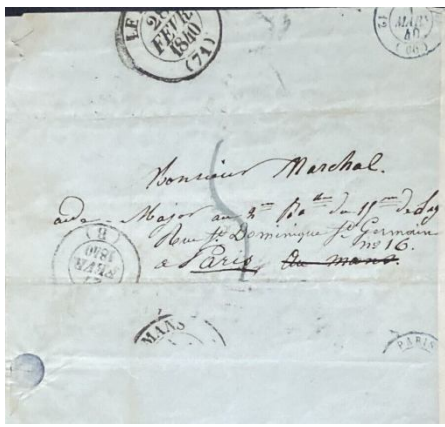 LE
28
FEVR
1840
(71)
1
MARS
40
(60)
Monsieur Marchal.
aide-Major au 2me Bon du 11me de Lig
Rue St. Dominique St. Germain
no 16.
a Paris, au mans.
(8)
27
FEVR
1840
MANS
PARIS